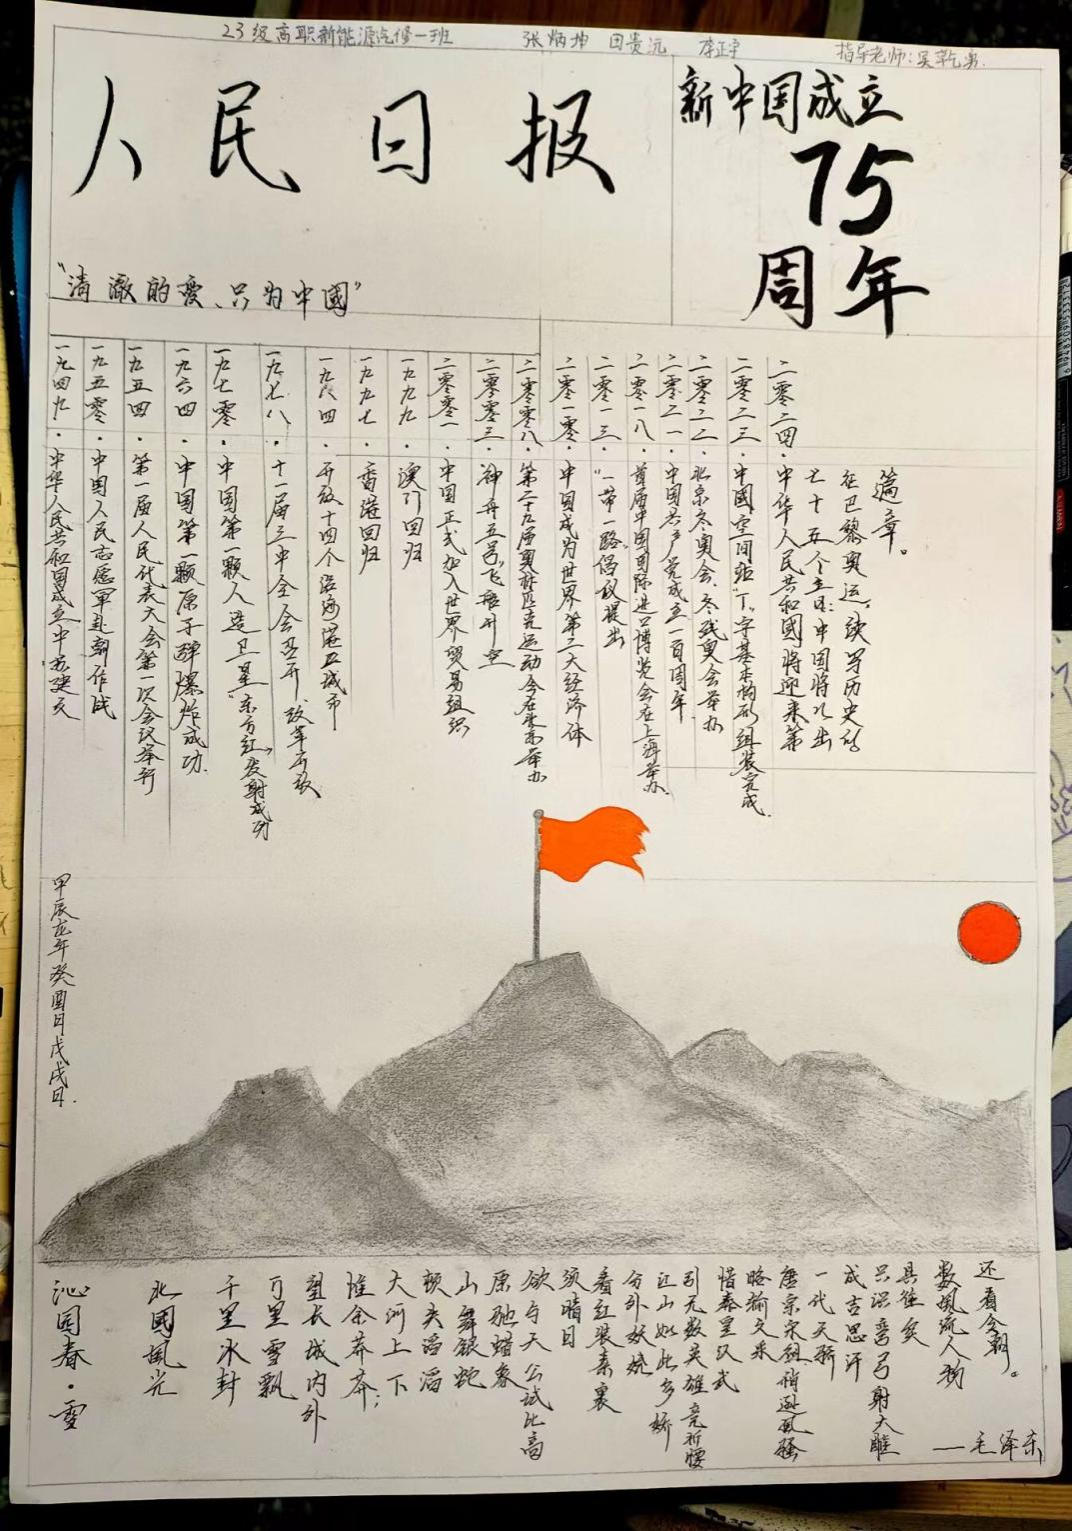 23级高职新能源汽修一班 张炳坤 田贵沅 李正宇 指导老师:吴乾勇.
人民日报
新中国成立
75
周年
"清澈的爱、只为中國"
一九四九·中华人民共和国成立中苏建交
一九五零·中国人民志愿军赴朝作战
一九五四·第一届人民代表大会第一次会议举行
一九六四·中国第一颗原子弹爆炸成功.
一九七零·中国第一颗人造卫星"东方红"发射成功
一九七八·十一届三中全会召开、改革开放
一九八四·开放十四个沿海港口城市
一九九七·香港回归
一九九九·澳门回归
二零零一·中国正式加入世界贸易组织
二零零三·神舟五号飞船升空
二零零八·第二十九届奥林匹克运动会在北京举办
二零一零·中国成为世界第二大经济体
二零一三·"一带一路"倡议提出
二零一八·首届中国国际进口博览会在上海举办.
二零二一·中国共产党成立一百周年
二零二二·北京冬奥会、冬残奥会举办
二零二三·中國空间站"丁"字基本构形组装完成
二零二四·中华人民共和國将迎来第
七十五个生日:中国将以出
征巴黎奥运,续写历史的
篇章。
甲辰龙年癸酉月戊戌日.
沁园春·雪
北國風光
千里冰封
万里雪飘
望长城内外
惟余莽莽;
大河上下
顿失滔滔
山舞银蛇
原驰蜡象
欲与天公试比高
须晴日
看红装素裹
分外妖娆
江山如此多娇
引无数英雄竞折腰
惜秦皇汉武
略输文采
唐宗宋祖稍逊風騷
一代天骄
成吉思汗
只识弯弓射大雕
具往矣
数風流人物
还看今朝。
——毛泽东